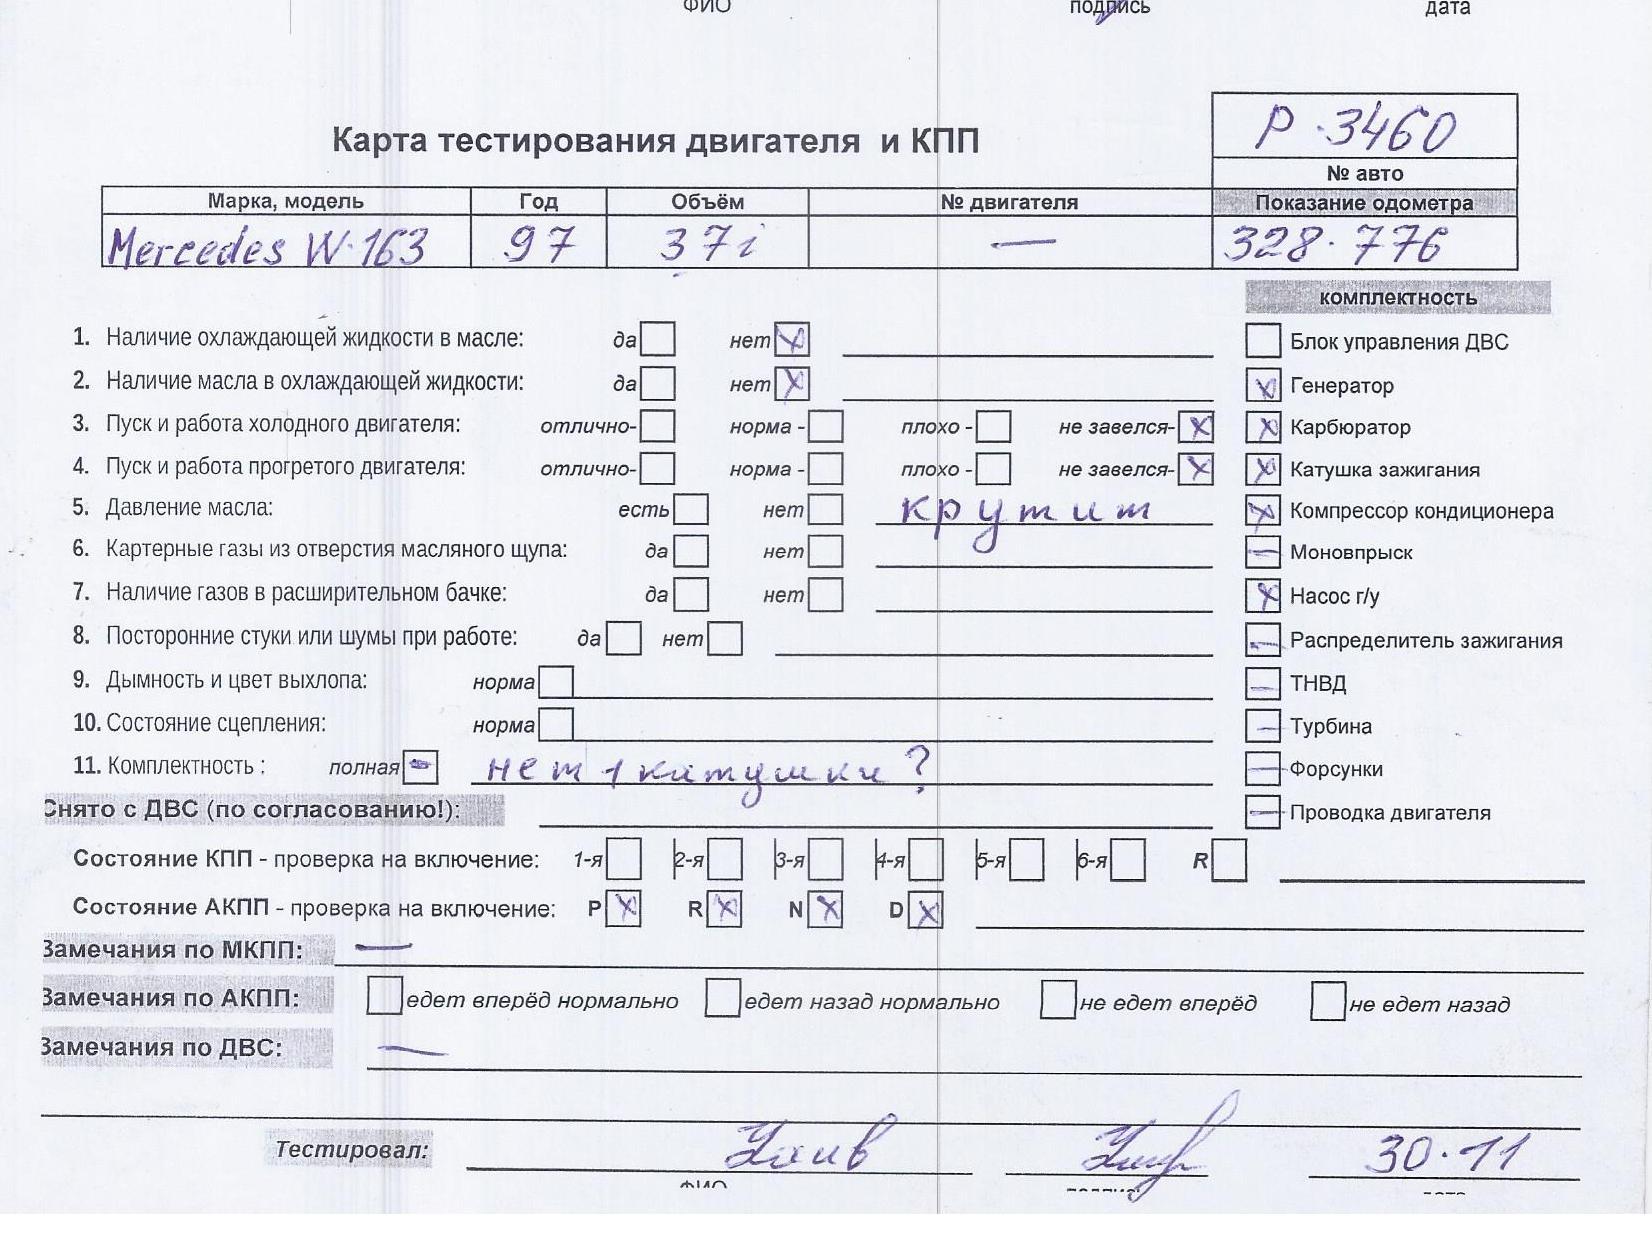 ФИО подпись дата
Р-3460
Карта тестирования двигателя и КПП
№ авто
Марка, модель Год Объём № двигателя Показание одометра
Mercedes W-163 97 37i — 328.776
комплектность
1. Наличие охлаждающей жидкости в масле: да нет X Блок управления ДВС
2. Наличие масла в охлаждающей жидкости: да нет X X Генератор
3. Пуск и работа холодного двигателя: отлично- норма - плохо - не завелся- X X Карбюратор
4. Пуск и работа прогретого двигателя: отлично- норма - плохо - не завелся- X X Катушка зажигания
5. Давление масла: есть нет крутит X Компрессор кондиционера
6. Картерные газы из отверстия масляного щупа: да нет — Моновпрыск
7. Наличие газов в расширительном бачке: да нет X Насос г/у
8. Посторонние стуки или шумы при работе: да нет — Распределитель зажигания
9. Дымность и цвет выхлопа: норма — ТНВД
10. Состояние сцепления: норма — Турбина
11. Комплектность : полная — нет 1 катушки ? — Форсунки
Снято с ДВС (по согласованию!): — Проводка двигателя
Состояние КПП - проверка на включение: 1-я 2-я 3-я 4-я 5-я 6-я R
Состояние АКПП - проверка на включение: P X R X N X D X
Замечания по МКПП: —
Замечания по АКПП: едет вперёд нормально едет назад нормально не едет вперёд не едет назад
Замечания по ДВС: —
Тестировал: 30.11
ФИО подпись дата